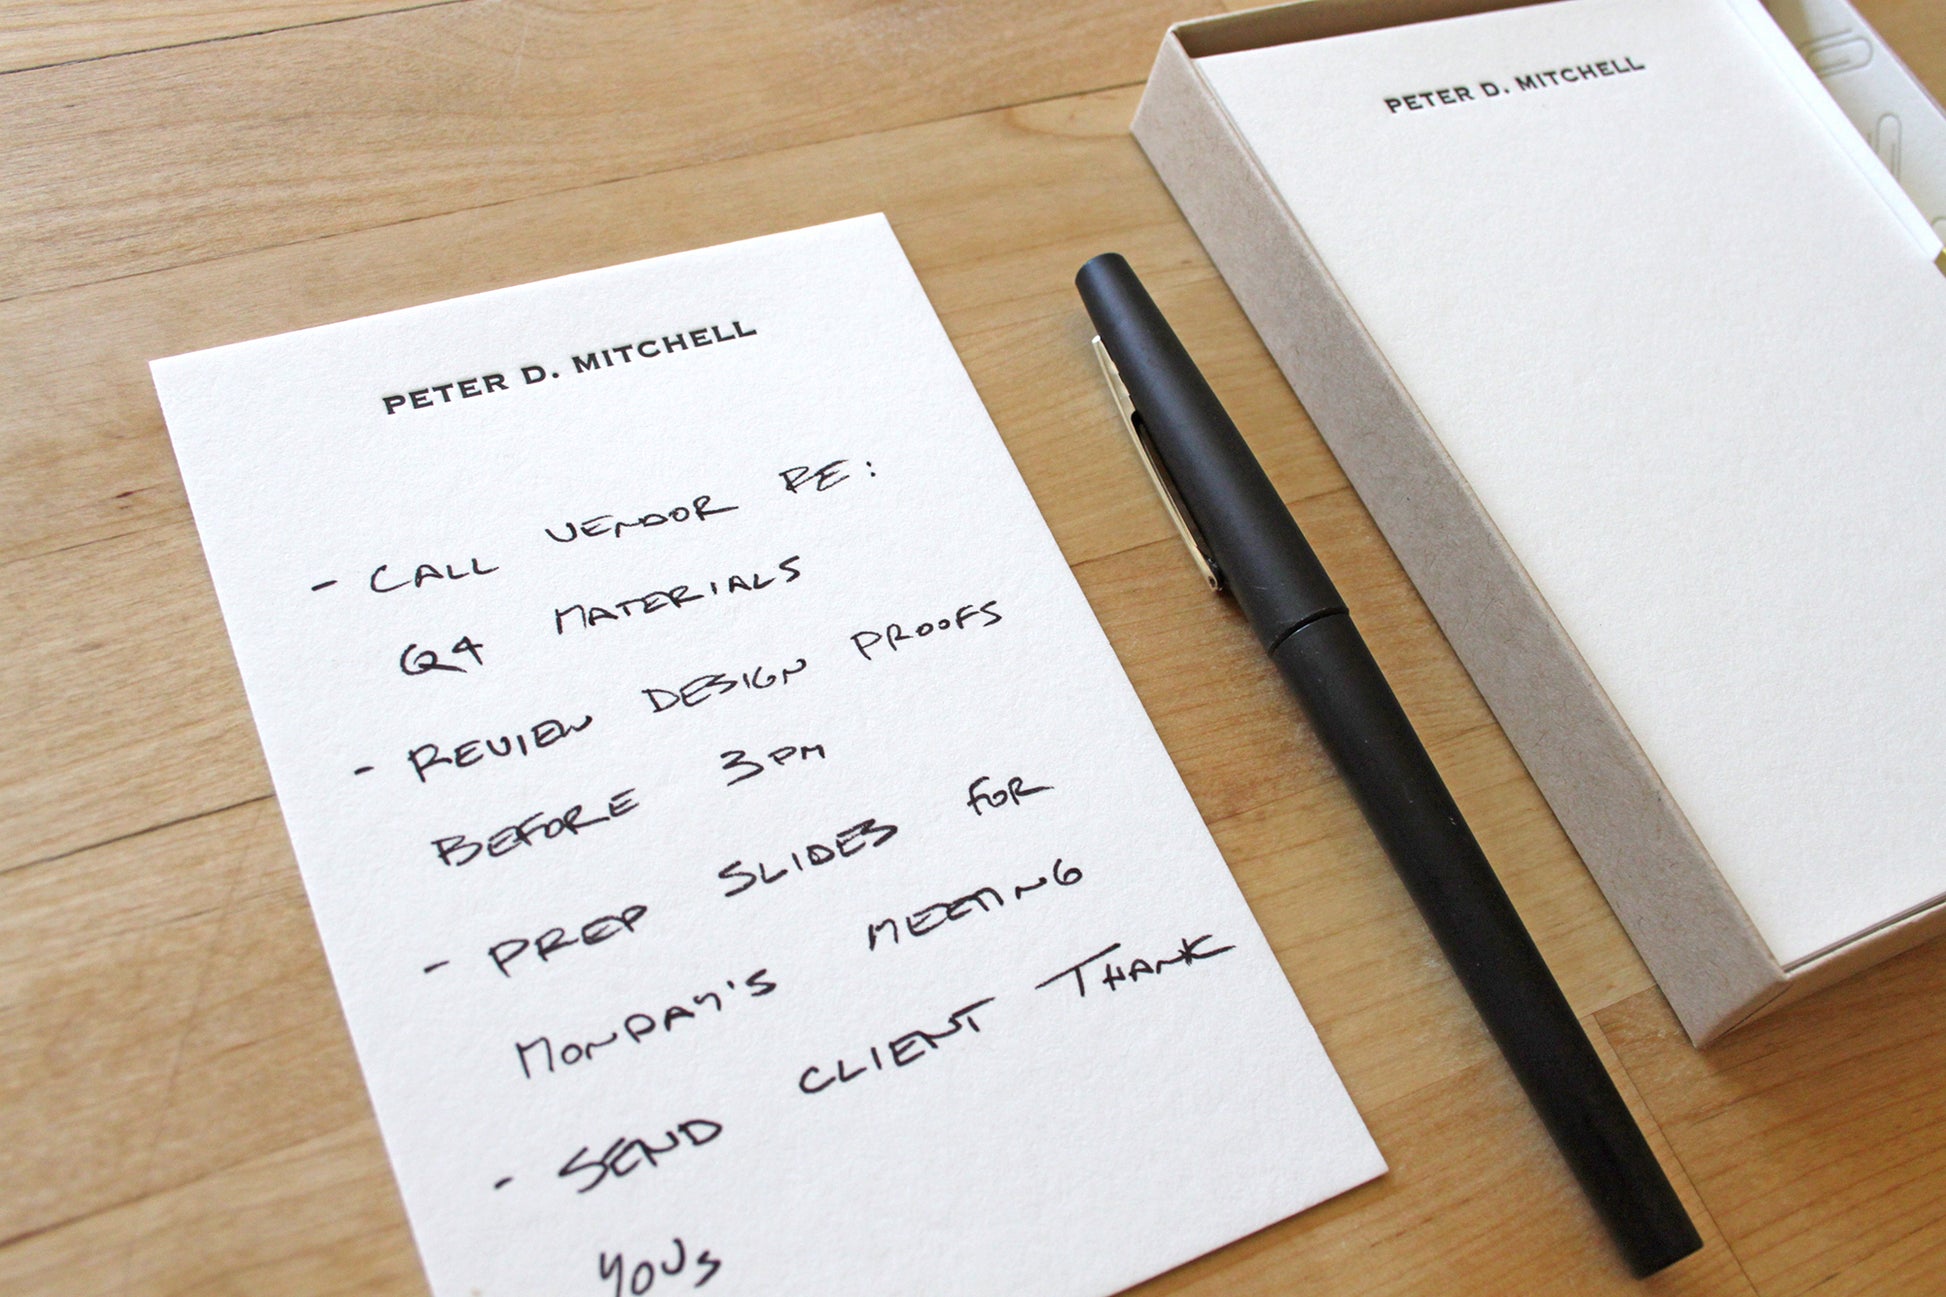 PETER D. MITCHELL
- CALL VENDOR RE:
Q4 MATERIALS
- REVIEW DESIGN PROOFS
BEFORE 3PM
- PREP SLIDES FOR
MONDAY'S MEETING
- SEND CLIENT THANK
YOUS
PETER D. MITCHELL